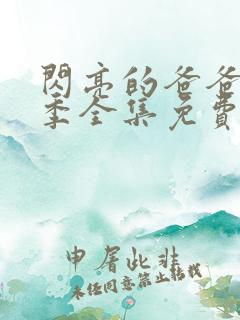 閃亮的爸爸
季全集免費
申屠此非
未经同意禁止转载